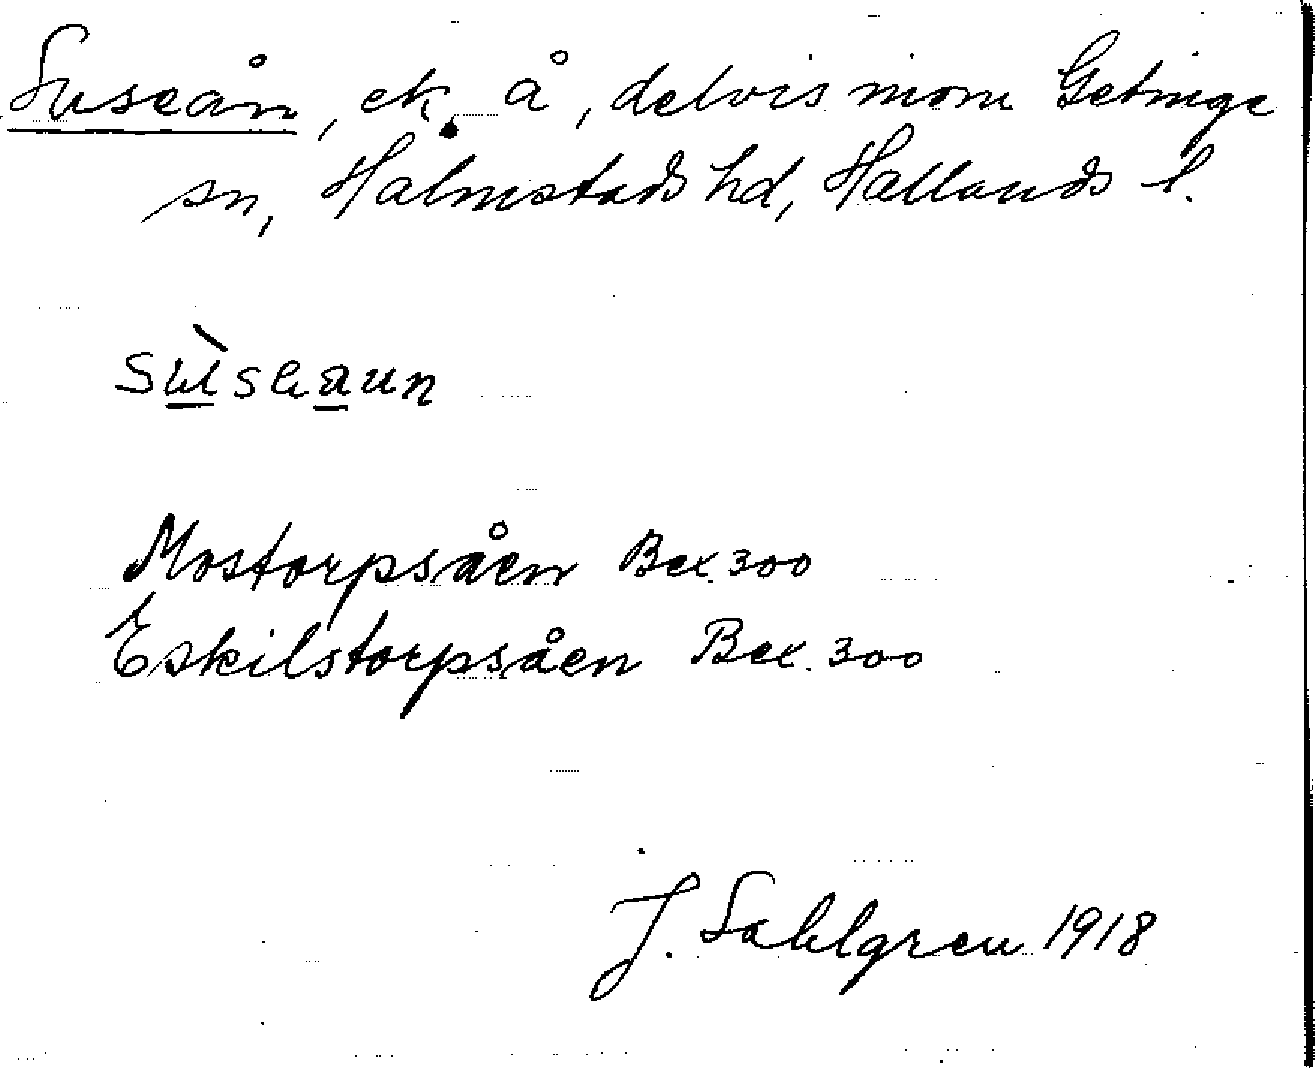 Suseån, ek. å, delvis inom Getinge
sn, Halmstads hd, Hallands l.
Mostorpsåen Bex. 300
Eskilstorpsåen Bex. 300
J. Sahlgren 1918